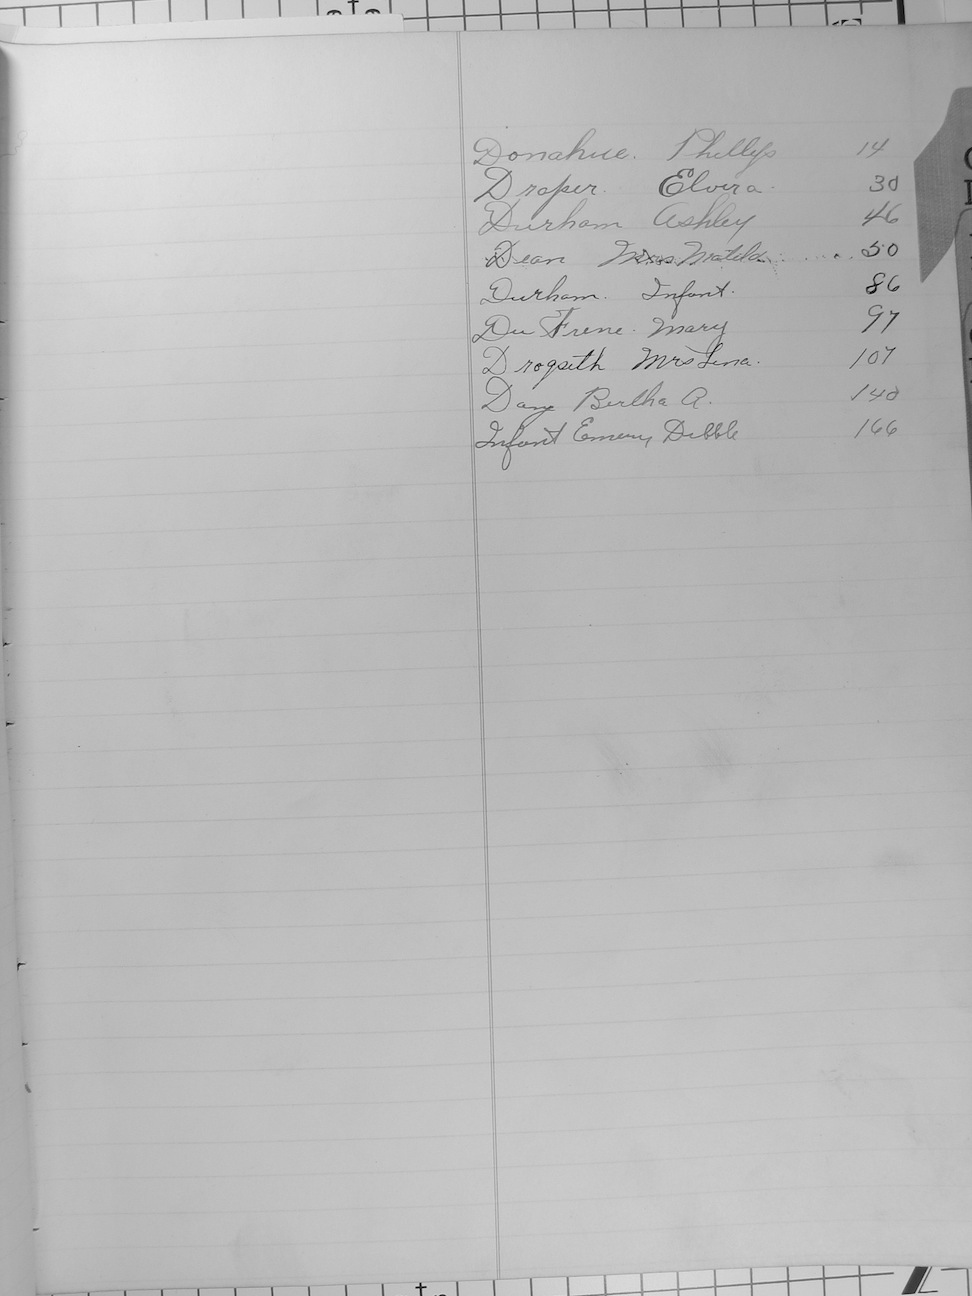 Donahue. Phillys 14
Draper. Elvira. 30
Durham Ashley 46
Dean Mrs Matilda 50
Durham. Infant. 86
Du Frene. Mary 97
Drogseth Mrs Lena. 107
Day Bertha A. 140
Infant Emery Dibble 166